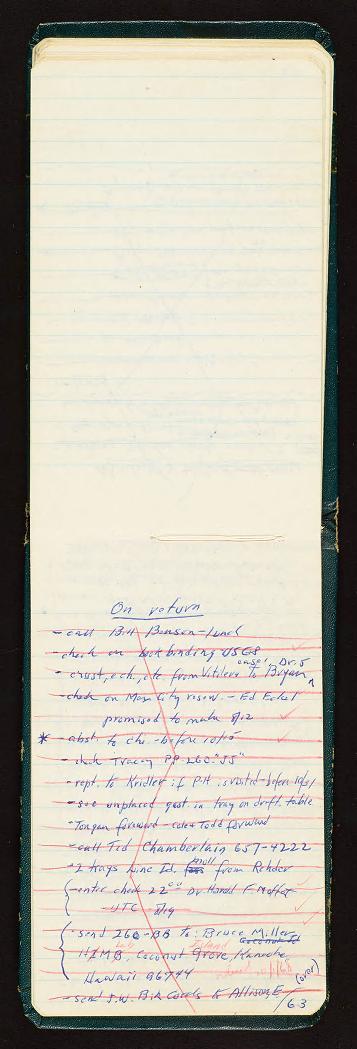 On return
- call Bill Benson - lunch
- check on bookbinding USGS
- crust, ech, etc from Vitilevu to Bryan
- check on Mon City reserv. - Ed Eckel
promised to make 8/12
* - abst. to Chi. - before 10/15
- chek Tracey PP 260 "JJ"
- rept. to Kridler if P.H. visited - before 10/31
- see unplaced gast in tray on drft. table
- Tongan forward - cole + Todd forward
- call Ted Chamberlain 657-4222
- 2 trays mine Id. moll from Rehder
- enter check 22.00 Dr. Harold F Moffet
- send 260-BB to: Bruce Miller
HIMB, Coconut Grove, Kaneohe
Lab Island
Hawaii 96744
(over)
- send J.W. Bik Corals to Allison, E
/63